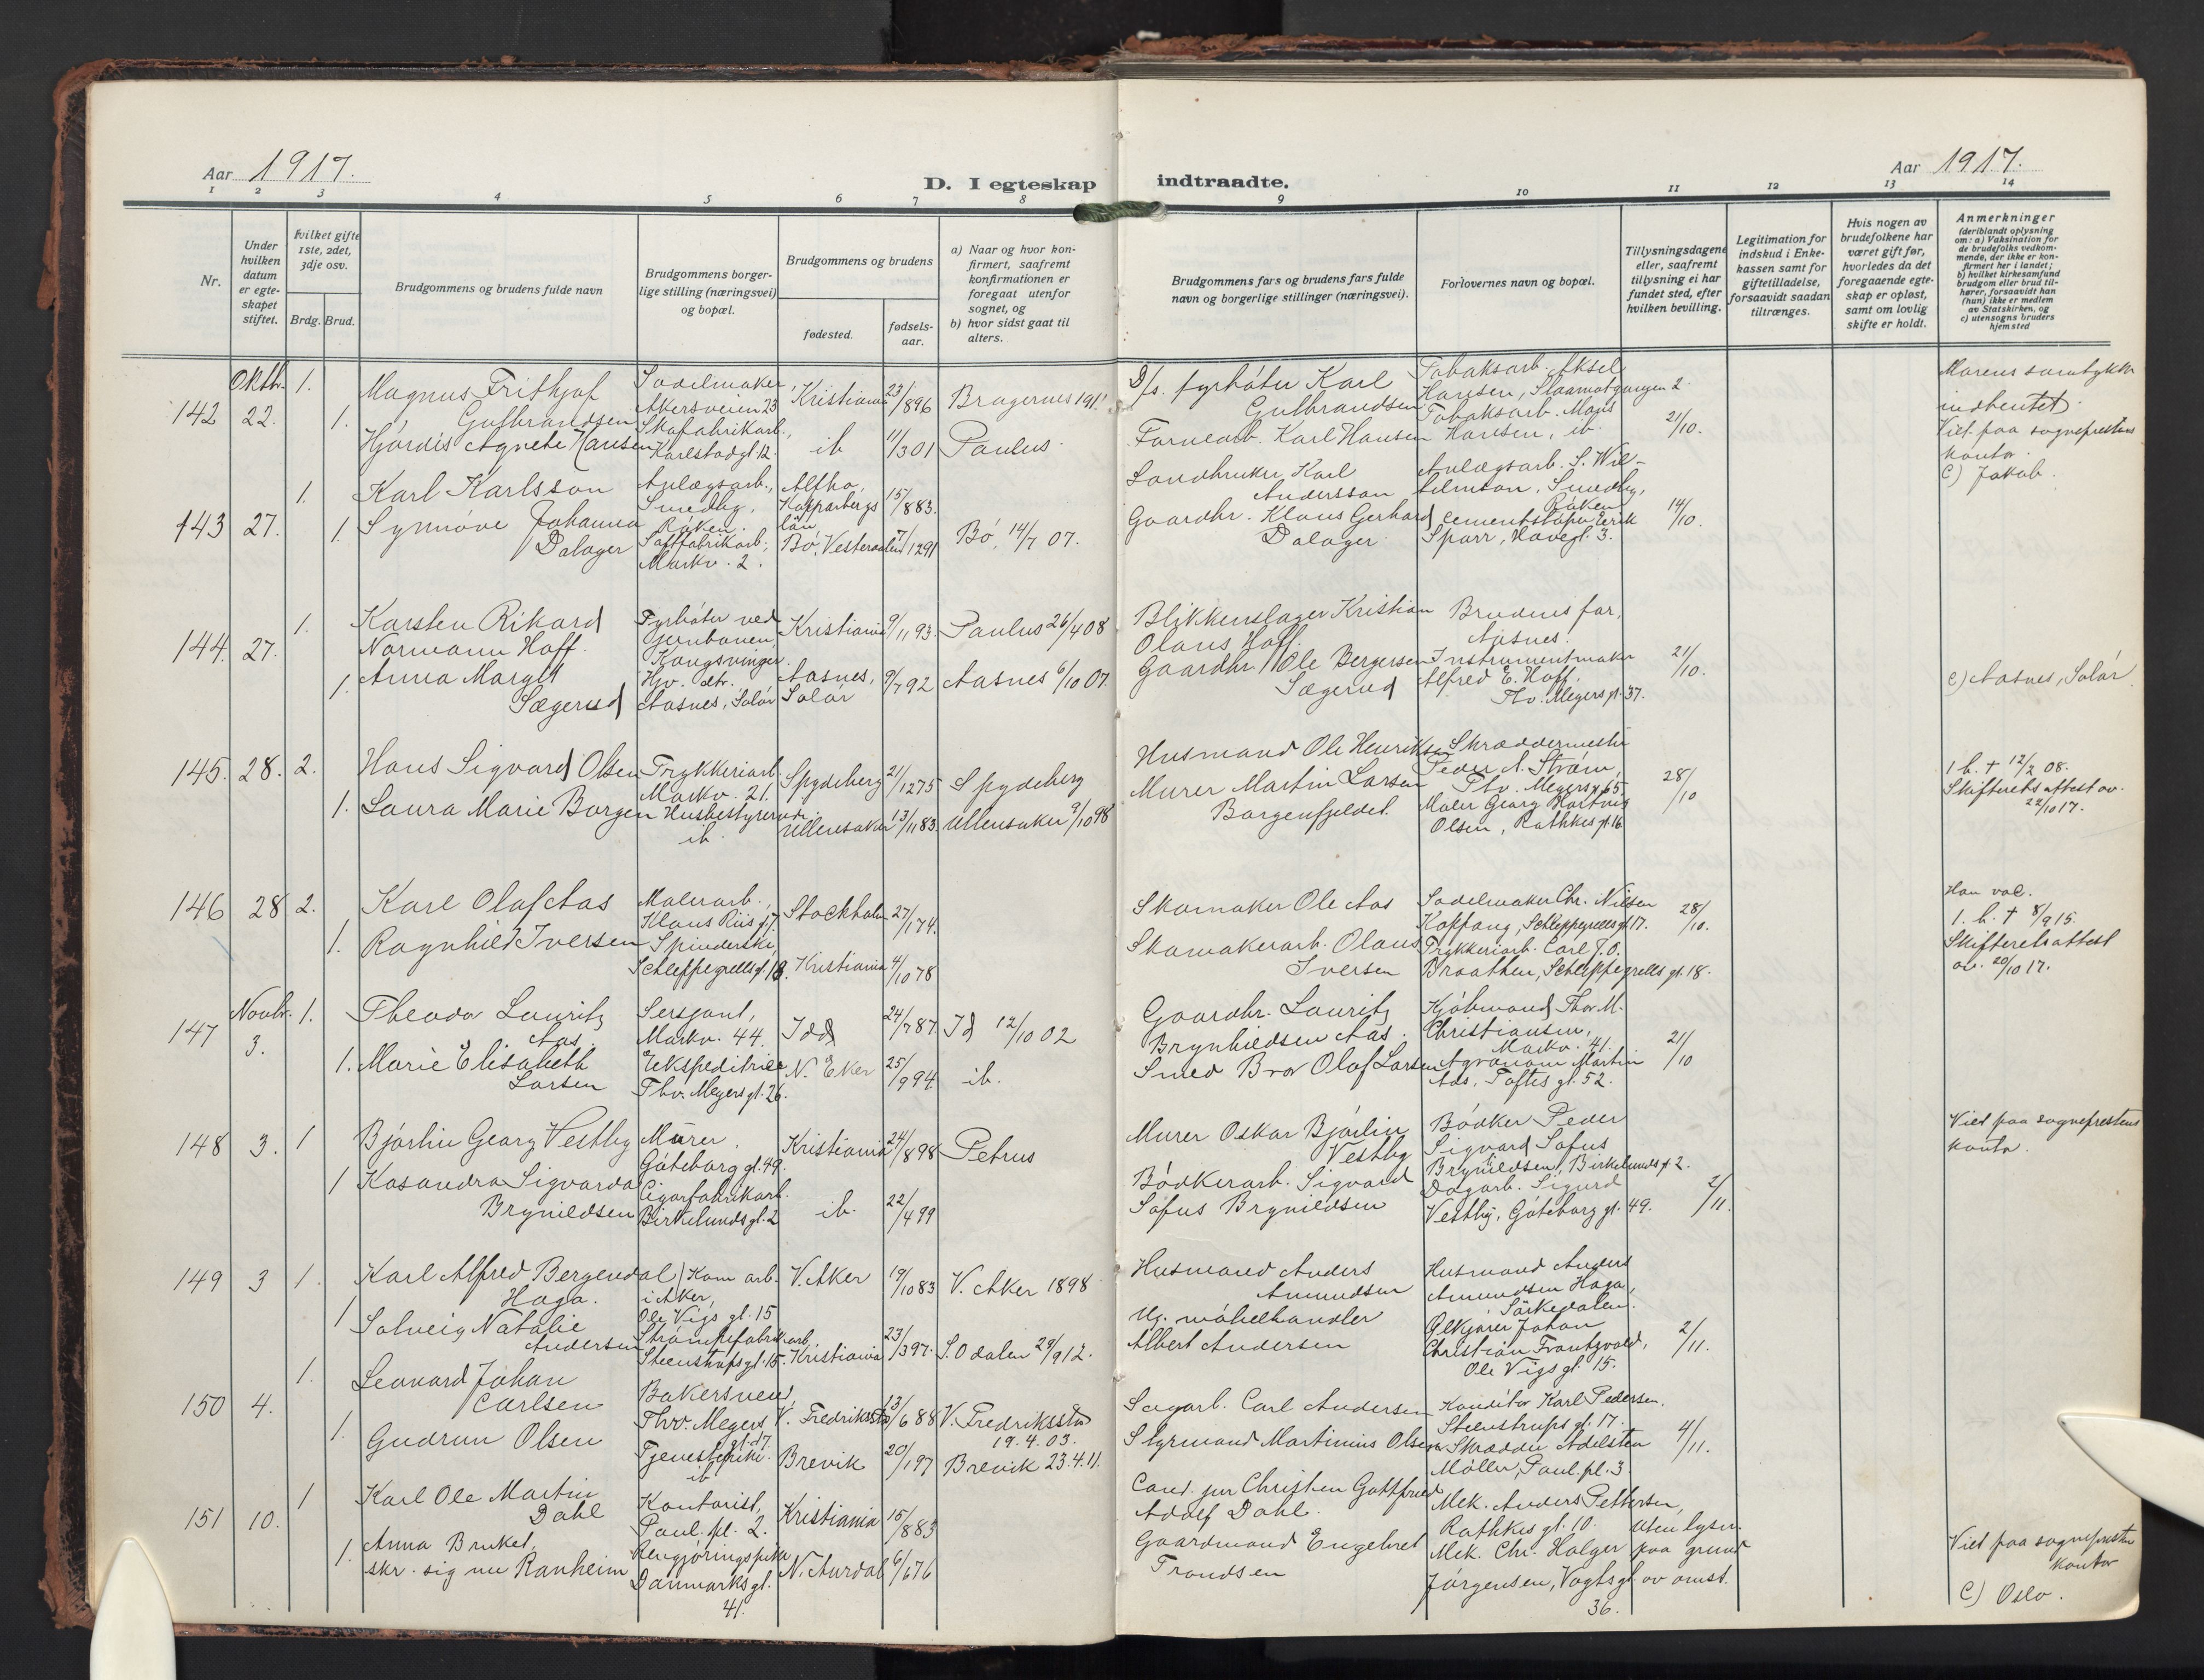 Aar 1917.
D. I egteskap indtraadte.
Aar 1917.
1 2 3 4 5 6 7 8 9 10 11 12 13 14
Nr.
Under hvilken datum er egteskapet stiftet.
Hvilket gifte 1ste, 2det, 3dje osv.
Brdg. Brud.
Brudgommens og brudens fulde navn
Brudgommens borgerlige stilling (næringsvei) og bopæl.
Brudgommens og brudens
fødested.
fødselsaar.
a) Naar og hvor konfirmert, saafremt konfirmationen er foregaat utenfor sognet, og
b) hvor sidst gaat til alters.
Brudgommens fars og brudens fars fulde navn og borgerlige stillinger (næringsvei).
Forlovernes navn og bopæl.
Tillysningsdagene eller, saafremt tillysning ei har fundet sted, efter hvilken bevilling.
Legitimation for indskud i Enkekassen samt for giftetilladelse, forsaavidt saadan tiltrænges.
Hvis nogen av brudefolkene har været gift før, hvorledes da det foregaaende egteskap er opløst, samt om lovlig skifte er holdt.
Anmerkninger (deriblandt oplysning om: a) Vaksination for de brudefolks vedkommende, der ikke er konfirmert her i landet; b) hvilket kirkesamfund brudgom eller brud tilhører, forsaavidt han (hun) ikke er medlem av Statskirken, og c) utensogns bruders hjemsted
142 Oktbr. 22. 1. Magnus Frithjof Gulbrandsen
Sadelmaker, Akersveien 23
Kristiania 23/896 Bragernes 1911
D/s. fyrbøter Karl Gulbrandsen
Tobaksarb. Aksel Hansen, Slaamotgangen 2.
1. Hjördis Agnete Hansen
Skofabrikarb., Karlstadgt. 12.
ib 11/301 Paulus.
Farverarb. Karl Hansen
Tobaksarb. Hansen, ib.
21/10.
Morens samtykke indhentet.
Viet paa sogneprestens kontor.
C) Jakob.
143 27. 1. Karl Karlsson
Anlægsarb., Smedby, Røken.
Kopparbergs län 15/883.
Landbruker Karl Andersson
Anlægsarb. S. Wilhelmson, Smedby, Røken
1. Synnöve Johanna Dalager
Saftfabrikarb., Markv. 2.
Bö, Vesteraalen 7/1291 Bö, 14/7 07.
Gaardbr. Klaus Gerhard Dalager.
Cementstøper Erik Sparr, Havegt. 3.
14/10.
144. 27. 1. Karsten Rikard Normann Hoff.
Fyrbøter ved Jernbanen, Kongsvinger.
Kristiania 9/1193. Paulus 26/4 08
Blikkenslager Kristian Olaus Hoff.
Brudens far, Aasnes.
1. Anna Margit Sægerud
Hjv. dtr. Aasnes, Solör
Aasnes, Solör 9/792 Aasnes 6/10 07.
Gaardbr. Ole Bergersen Sægerud
Instrumentmaker Alfred E. Hoff, Thv. Meyers gt. 37.
21/10.
C) Aasnes, Solör.
145. 28. 2. Hans Sigvard Olsen
Trykkeriarb. Markv. 21.
Spydeberg 21/1275 Spydeberg
Husmand Ole Henriksen
Skræddermester Peder A. Ström, Thv. Meyersgt 65
1. Laura Marie Borgen
Husbestyrerinde ib.
Ullensaker 13/1183. Ullensaker 9/10 98
Murer Martin Larsen Borgenfjeldet.
Maler Georg Hartvig Olsen, Rathkes gt. 16
28/10
1 h. † 12/2 08.
Skifteretsattest av. 22/10 17.
146 28 2. Karl Olaf Aas
Malerarb., Klaus Riis gt. 7.
Stockholm 27/174.
Skomaker Ole Aas
Sadelmaker Chr. Nilsen Koppang, Schleppegrells gt. 17.
1. Ragnhild Iversen
Spinderske, Schleppegrells gt. 18.
Kristiania 4/1078
Skomakerarb. Olaus Iversen
Trykkeriarb. Carl J. O. Braathen, Schleppegrells gt. 18.
28/10.
Han vac.
1. h. † 8/9 15.
Skifteretsattest av. 20/10 17.
147 Novbr. 3. 1. Theodor Lauritz Aas.
Sersjant, Markv. 44.
Idd 24/787. Id 12/10 02
Gaardbr. Lauritz Brynhildsen Aas.
Kjöbmand Thor M. Christiansen, Markv. 41.
1. Marie Elisabeth Larsen
Ekspeditrice Thv. Meyers gt. 26.
N. Eker 25/994 ib.
Smed Bror Olaf Larsen
Agronom Martin Aas, Toftes gt. 52.
21/10
148 3. 1 Bjarlin Georg Vestby
Murer. Göteborg gt. 49.
Kristiania 24/898 Petrus
Murer Oskar Bjarlin Vestby
Bödker Peder Sigvard Sofus Brynildsen, Birkelunds gt 2.
1 Kasandra Sigvarda Brynildsen
Cigarfabrikarb. Birkelunds gt. 2
ib. 22/499
Bödkerarb. Sigvard Sofus Brynildsen
Dagarb. Sigurd Vestby, Göteborg gt. 49.
2/11.
Viet paa sogneprestens kontor.
149 3 1. Karl Alfred Bergendal Haga.
Kom arb. i Aker, Ole Vigs gt. 15
V. Aker 19/1083 V. Aker 1898
Husmand Anders Amundsen
Husmand Anders Amundsen Haga, Sörkedalen.
1 Solveig Natalie Andersen
Strömpefabrikarb., Steenstrupsgt. 15.
Kristiania 23/397. S. Odalen 29/9 12.
Ug. møbelhandler Albert Andersen
Ölkjörer Johan Christian Frantzvold, Ole Vigs gt. 15.
2/11.
150 4. 1. Leonard Johan Carlsen
Bakersvend, Thv. Meyers gt. 27.
V. Fredriksstad 13/688 V. Fredriksstad 19.4.03.
Sagarb. Carl Andersen
Konditor Karl Pedersen, Steenstrups gt. 17.
1. Gudrun Olsen
Tjenestepike. ib
Brevik 20/197 Brevik 23.4.11.
Styrmand Martinius Olsen
Skrædder Adelsten Møller, Paul. pl. 3.
4/11.
151 10. 1 Karl Ole Martin Dahl
Kontorist, Paul. pl. 2.
Kristiania 15/883
Cand. jur Christen Gottfried Adolf Dahl.
Mek. Anders Pettersen, Rathkes gt. 10.
1. Anna Bruket, skr. sig nu Ranheim
Rengjöringspike Danmarksgt. 41.
N. Aurdal 6/676
Gaardmand Engebret Trondsen
Mek. Chr. Holger Jörgensen, Vogtsgt 36.
Uten lysn. paa grund av omst.
Viet paa sogneprestens kontor
C) Oslo.